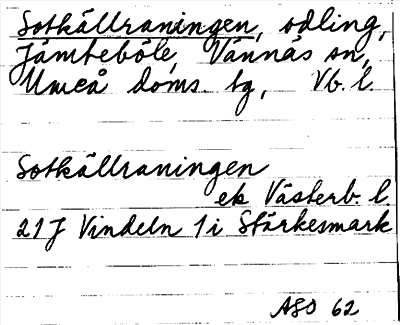 Sotkällraningen, odling,
Jämteböle, Vännäs sn,
Umeå doms. tg, Vb. l.
Sotkällraningen
ek Västerb. l.
21 J Vindeln 1 i Stärkesmark
ASO 62